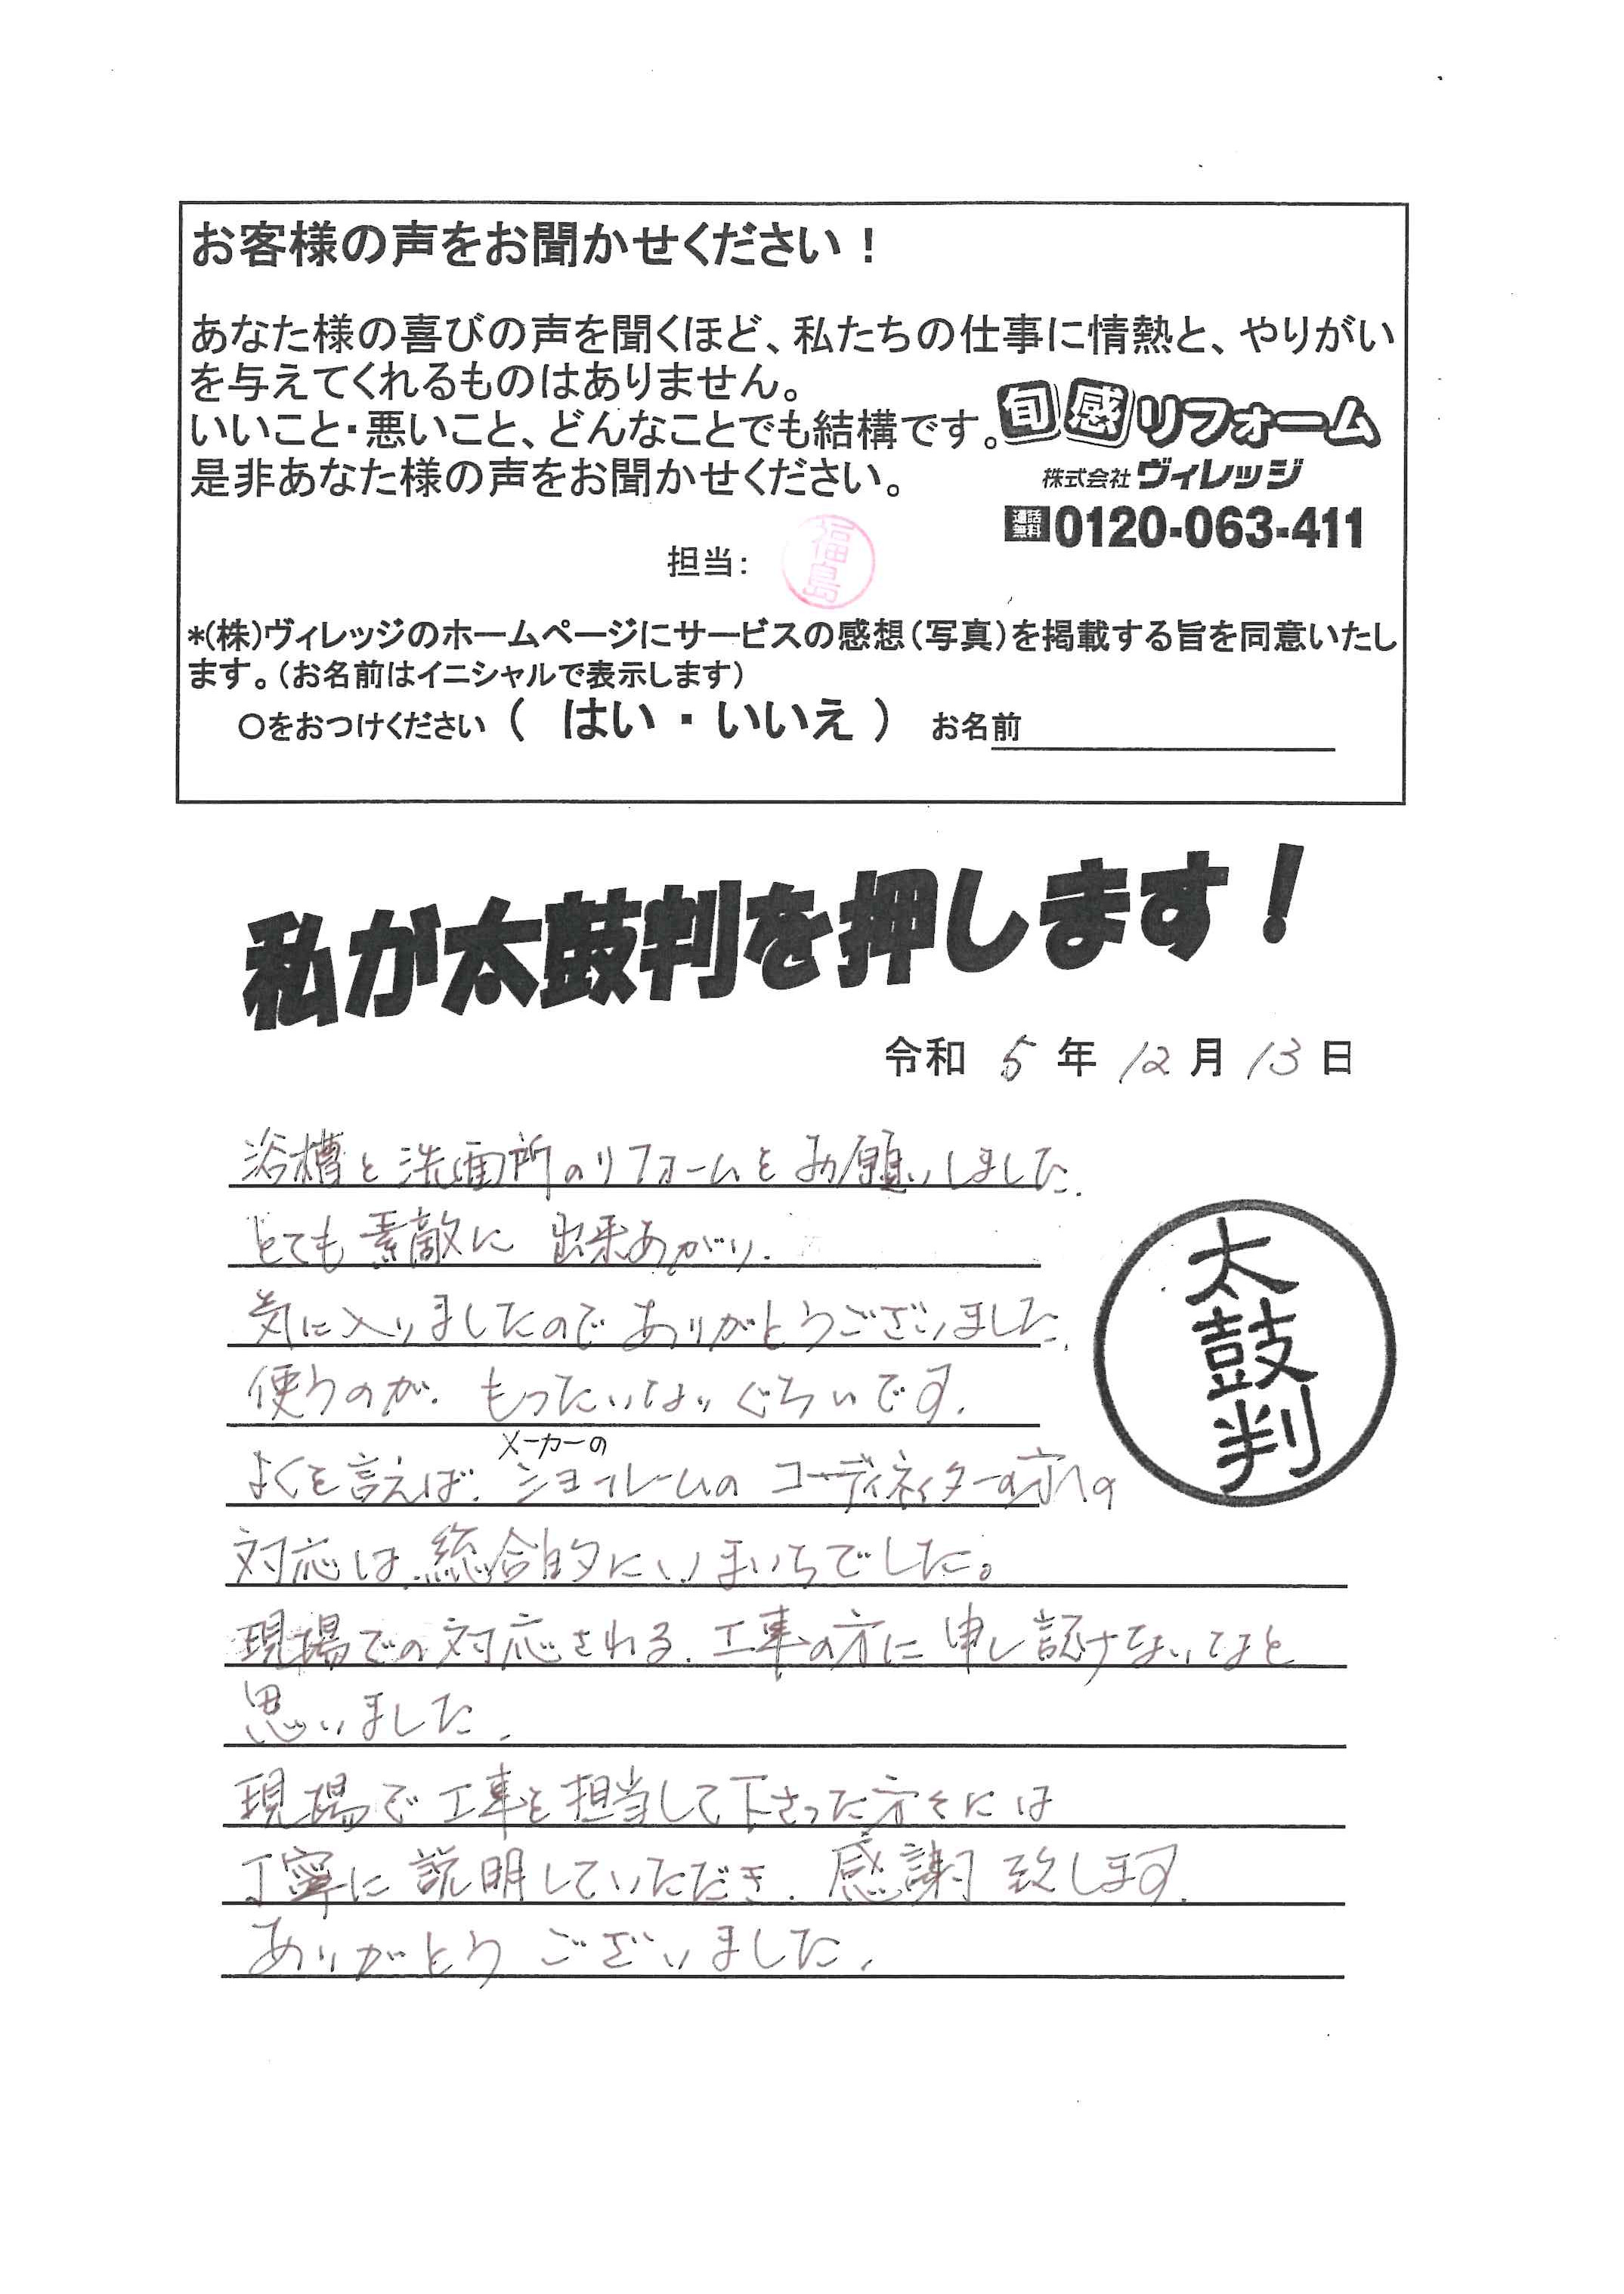 お客様の声をお聞かせください！
あなた様の喜びの声を聞くほど、私たちの仕事に情熱と、やりがい
を与えてくれるものはありません。
いいこと・悪いこと、どんなことでも結構です。
是非あなた様の声をお聞かせください。
旬感リフォーム
株式会社ヴィレッジ
通話無料 0120-063-411
担当：
福島
*(株)ヴィレッジのホームページにサービスの感想(写真)を掲載する旨を同意いたし
ます。(お名前はイニシャルで表示します)
○をおつけください ( はい ・ いいえ ) お名前
私が太鼓判を押します！
令和 5 年 12 月 13 日
浴槽と洗面所のリフォームをお願いしました.
とても素敵に 出来あがり.
気に入りましたので ありがとうございました.
使うのが. もったいない ぐらいです.
メーカーの
よくを言えば. ショールームの コーディネイターの方への
対応は. 総合的にいまいちでした。
現場での対応される. 工事の方に 申し訳けないなと
思いました.
現場で工事を担当して下さった方々には
丁寧に 説明していただき. 感謝 致します.
ありがとう ございました.
太鼓判